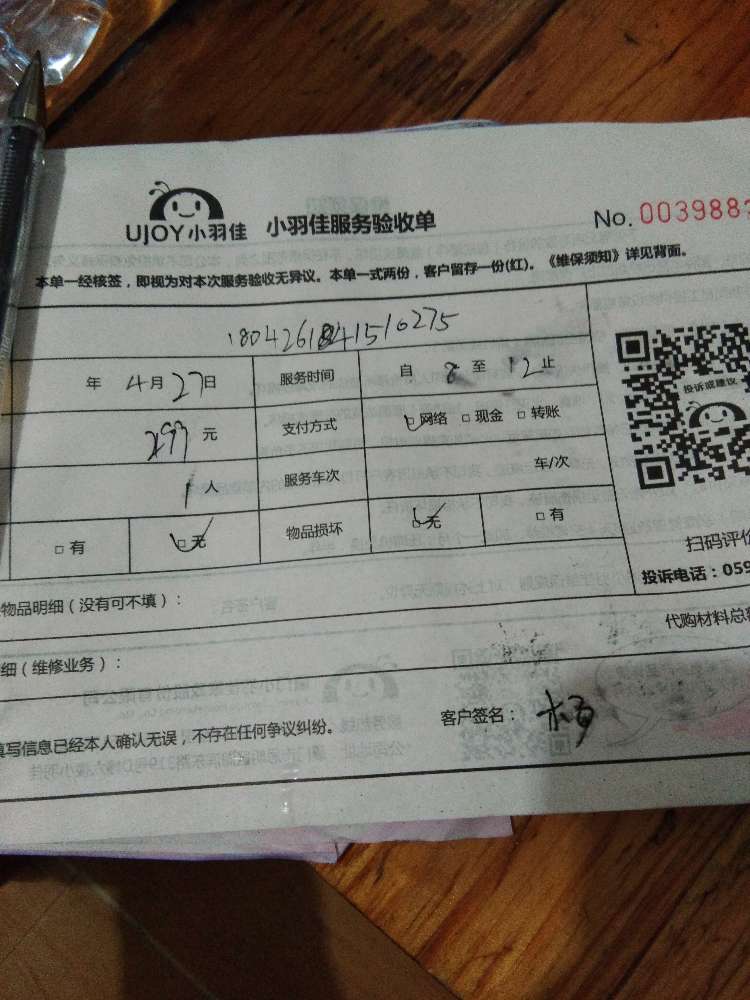 UJOY小羽佳 小羽佳服务验收单 No. 0039883
本单一经核签，即视为对本次服务验收无异议。本单一式两份，客户留存一份(红)。《维保须知》详见背面。
年 4月27日 服务时间 自 8 至 12止
299元 支付方式 网络 □现金 □转账
投诉或建议
1人 服务车次 车/次
□有 □无 物品损坏 □无 □有
扫码评价
投诉电话：059
物品明细（没有可不填）：
代购材料总
细（维修业务）：
填写信息已经本人确认无误，不存在任何争议纠纷。 客户签名：杨